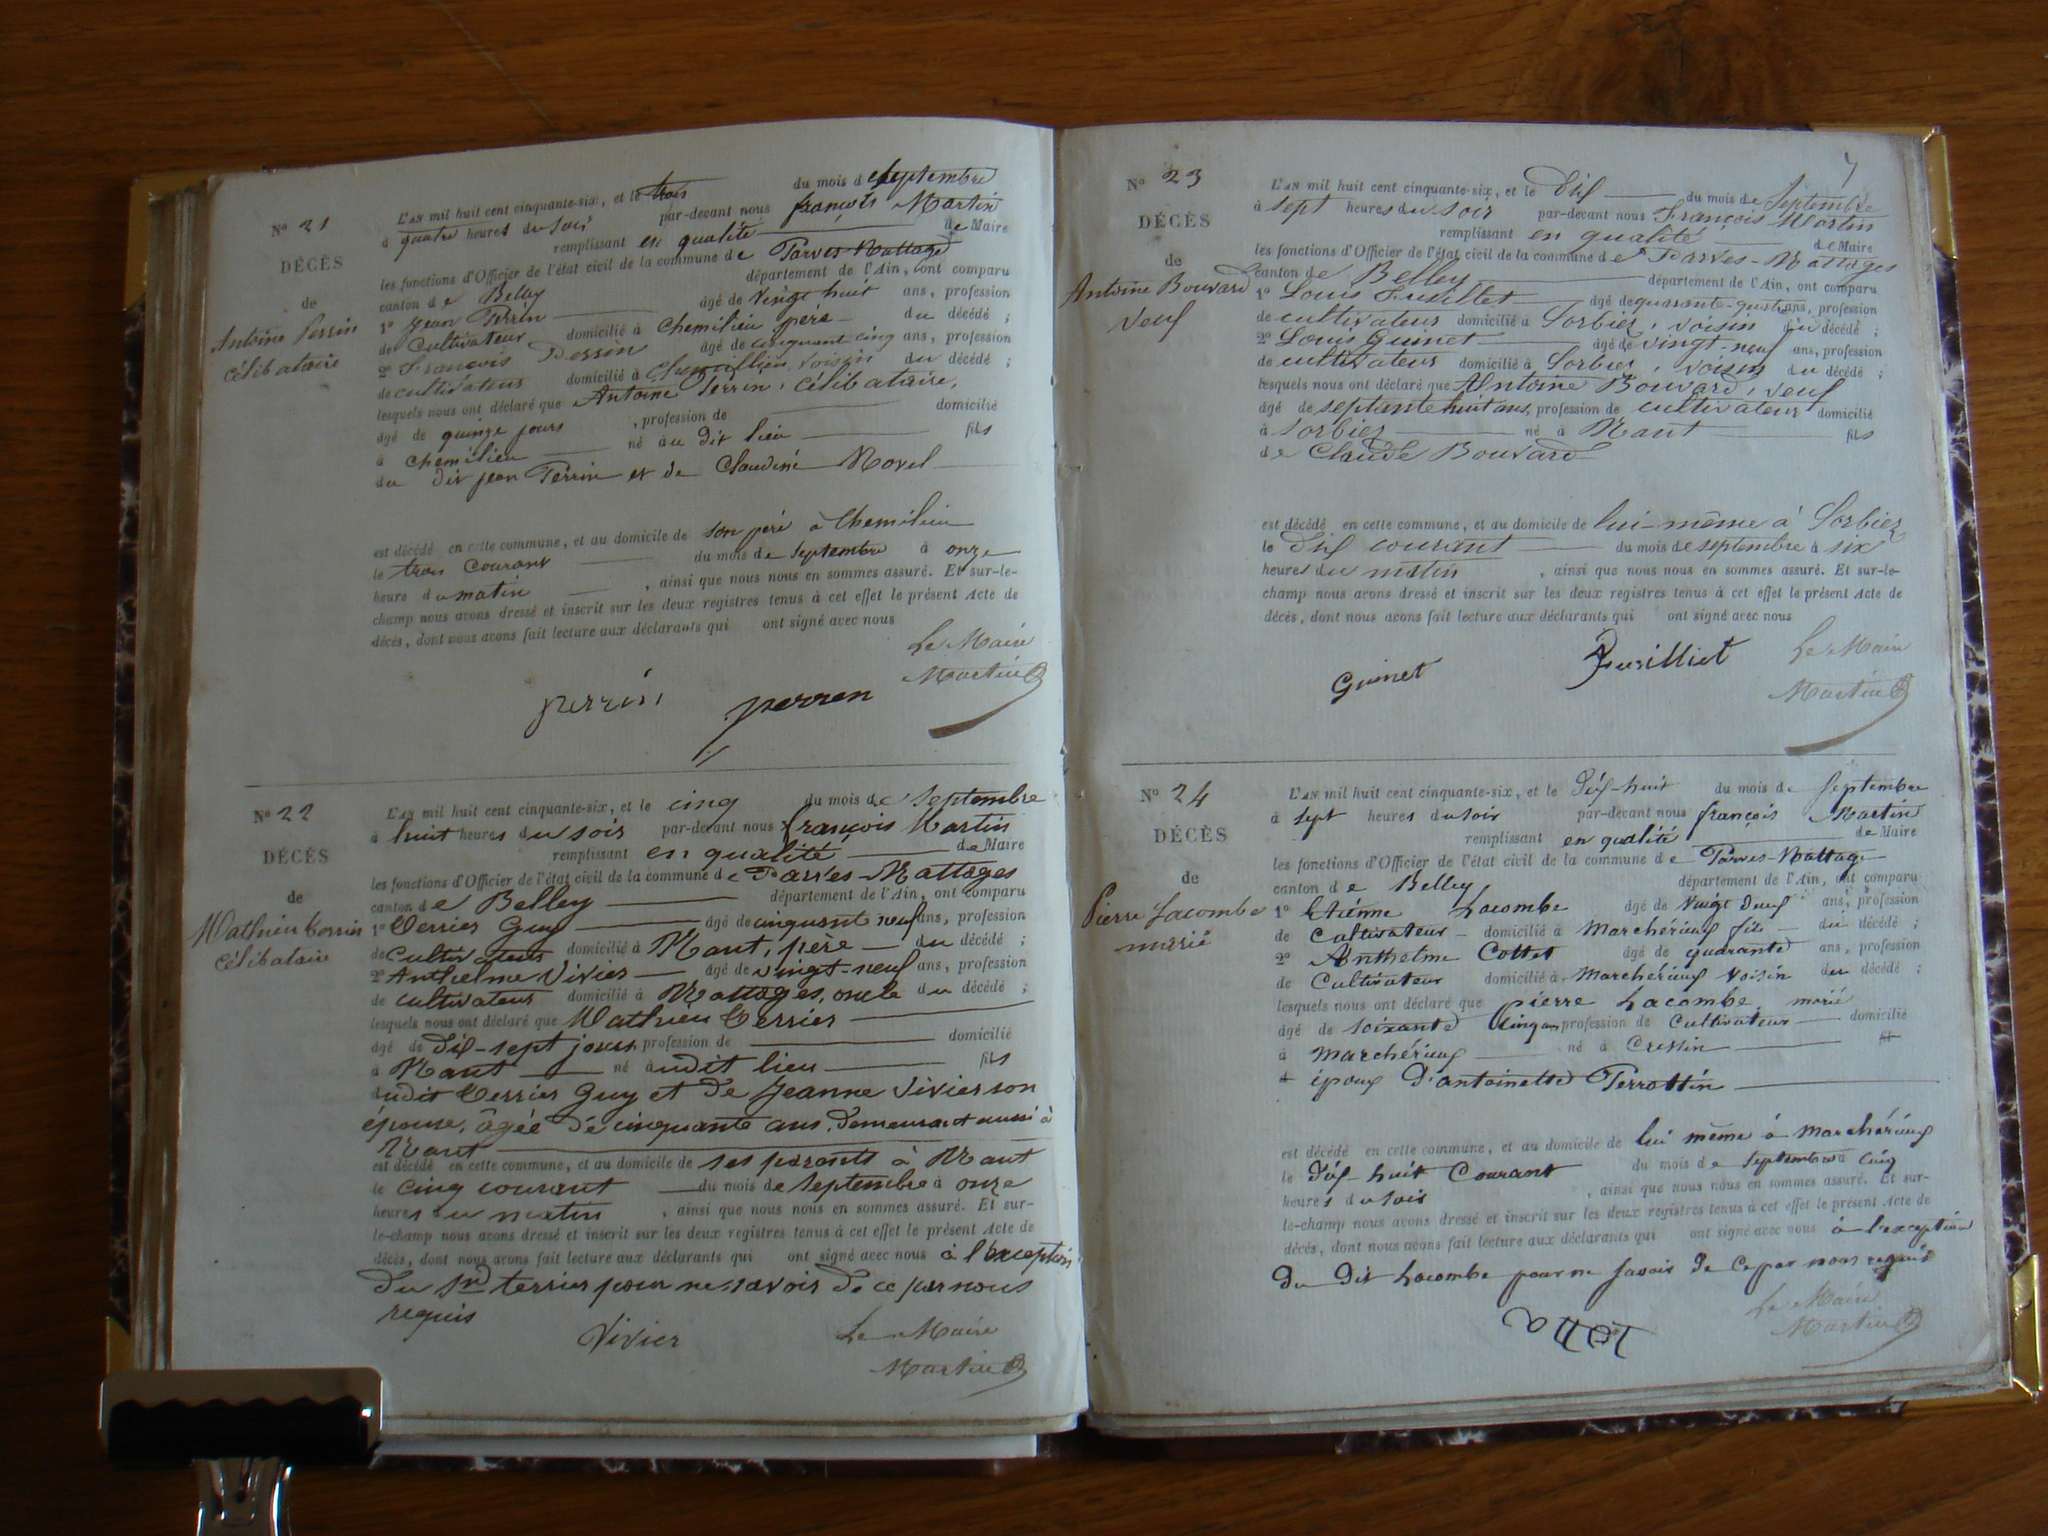 N° 21
DÉCÈS
de
Antoine Perrin
célibataire
L'AN mil huit cent cinquante-six, et le trois du mois de septembre
à quatre heures du soir par-devant nous françois Martin
remplissant en qualité de Maire
les fonctions d'Officier de l'état civil de la commune de Parves-Nattages
canton de Belley département de l'Ain, ont comparu
1° Jean Perrin âgé de vingt huit ans, profession
de Cultivateur domicilié à Chemilieu père du décédé ;
2° François Perrin âgé de cinquant cinq ans, profession
de cultivateur domicilié à Chemillieu, voisin du décédé ;
lesquels nous ont déclaré que Antoine Perrin, célibataire,
âgé de quinze jours , profession de domicilié
à chemilieu né au dit lieu fils
du dit jean Perrin et de Claudine Morel
est décédé en cette commune, et au domicile de son père à Chemilieu
le trois Courant du mois de Septembre à onze
heure du matin , ainsi que nous nous en sommes assuré. Et sur-le-
champ nous avons dressé et inscrit sur les deux registres tenus à cet effet le présent Acte de
décès, dont nous avons fait lecture aux déclarants qui ont signé avec nous
Le Maire
perrin perren Martin
N° 22
DÉCÈS
de
Mathieu Terrier
célibataire
L'AN mil huit cent cinquante-six, et le cinq du mois de septembre
à huit heures du soir par-devant nous françois Martin
remplissant en qualité de Maire
les fonctions d'Officier de l'état civil de la commune de Parves-Nattages
canton de Belley département de l'Ain, ont comparu
1° Terrier Guy âgé de cinquant neuf ans, profession
de Cultivateur domicilié à Nant, père du décédé ;
2° Anthelme Vivier âgé de vingt-neuf ans, profession
de cultivateur domicilié à Nattages, oncle du décédé ;
lesquels nous ont déclaré que Mathieu Terrier
âgé de dix-sept jours, profession de domicilié
à Nant né audit lieu fils
dudit Terrier Guy et de Jeanne Vivier son
épouse, âgée de cinquante ans, demeurant aussi à
Nant
est décédé en cette commune, et au domicile de ses parents à Nant
le cinq courant du mois de septembre à onze
heures du matin , ainsi que nous nous en sommes assuré. Et sur-
le-champ nous avons dressé et inscrit sur les deux registres tenus à cet effet le présent Acte de
décès, dont nous avons fait lecture aux déclarants qui ont signé avec nous à l'exception
du Snd terrier pour ne savoir de ce par nous
requis
Vivier Le Maire
Martin
7
N° 23
DÉCÈS
de
Antoine Bouvard
veuf
L'AN mil huit cent cinquante-six, et le Dix du mois de Septembre
à sept heures du soir par-devant nous François Martin
remplissant en qualité de Maire
les fonctions d'Officier de l'état civil de la commune de Parves-Nattages
canton de Belley département de l'Ain, ont comparu
1° Louis Fusillet âgé de quarante-quatre ans, profession
de cultivateur domicilié à Sorbier, voisin du décédé ;
2° Louis Guinet âgé de vingt-neuf ans, profession
de cultivateur domicilié à Sorbier, voisin du décédé ;
lesquels nous ont déclaré que Antoine Bouvard, veuf
âgé de septante huit ans, profession de cultivateur domicilié
à Sorbier né à Nant fils
de Claude Bouvard
est décédé en cette commune, et au domicile de lui-même à Sorbier
le Dix courant du mois de septembre à six
heures du matin , ainsi que nous nous en sommes assuré. Et sur-le-
champ nous avons dressé et inscrit sur les deux registres tenus à cet effet le présent Acte de
décès, dont nous avons fait lecture aux déclarants qui ont signé avec nous
Guinet Fusilliet Le Maire
Martin
N° 24
DÉCÈS
de
Pierre Lacombe
marié
L'AN mil huit cent cinquante-six, et le Dix-huit du mois de Septembre
à sept heures du soir par-devant nous françois Martin
remplissant en qualité de Maire
les fonctions d'Officier de l'état civil de la commune de Parves-Nattages
canton de Belley département de l'Ain, ont comparu
1° Etiénne Lacombe âgé de Vingt Deux ans, profession
de Cultivateur domicilié à Marchérieux fils du décédé ;
2° Anthelme Cottet âgé de quarante ans, profession
de Cultivateur domicilié à Marchérieux Voisin du décédé ;
lesquels nous ont déclaré que pierre Lacombe, marié
âgé de soixante cinq ans profession de Cultivateur domicilié
à Marchérieux né à Cressin fils
époux d'antoinette Perrottin
est décédé en cette commune, et au domicile de lui même à Marchérieux
le Dix-huit Courant du mois de Septembre à cinq
heures du soir , ainsi que nous nous en sommes assuré. Et sur-
le-champ nous avons dressé et inscrit sur les deux registres tenus à cet effet le présent Acte de
décès, dont nous avons fait lecture aux déclarants qui ont signé avec nous à l'exception
du Dit Lacombe pour ne savoir de ce par nous requis
Le Maire
Martin